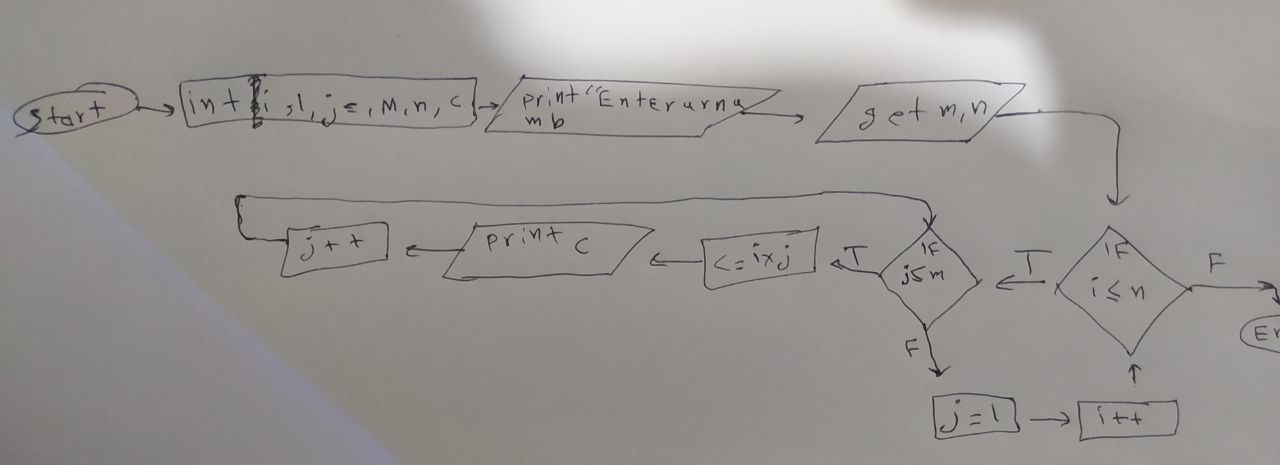 start
int i, 1, j=, M, n, c
print "Enterurnu
mb
get m,n
IF
i ≤ n
T
F
En
IF
j ≤ m
T
F
c = i×j
print c
j++
j = 1
i++